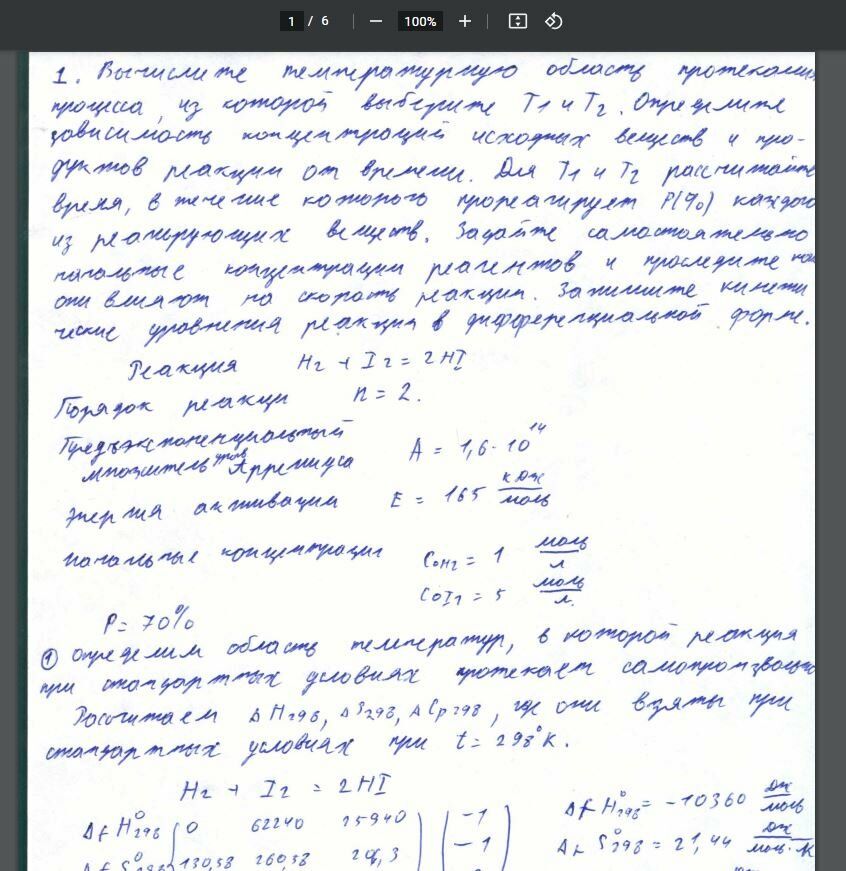 1 / 6 100%
1. Вычислите температурную область протекания
процесса, из которой выберите T1 и T2. Определите
зависимость концентраций исходных веществ и про-
дуктов реакции от времени. Для T1 и T2 рассчитайте
время, в течение которого прореагирует P(%) каждого
из реагирующих веществ. Задайте самостоятельно
начальные концентрации реагентов и проследите как
они влияют на скорость реакции. Запишите кинети
ческие уравнения реакции в дифференциальной форме.
Реакция H2 + I2 = 2HI
Порядок реакци n = 2.
Предъэкспоненциальный
множитель ур-ия Аррениуса A = 1,6·10^14
Энергия активации E = 165 кДж/моль
Начальные концентрации C0H2 = 1 моль/л
C0I2 = 5 моль/л.
P = 70%
① Определим область температур, в которой реакция
при стандартных условиях протекает самопроизвольно
Рассчитаем ΔH298, ΔS298, ΔCp298, где они взяты при
стандартных условиях при t = 298°K.
H2 + I2 = 2HI
ΔfH°298 0 62240 25940 -1 ΔfH°298 = -10360 Дж/моль
-1 ΔfS°298 = 21,44 Дж/моль·K
ΔfS°298 130,58 260,58 206,3